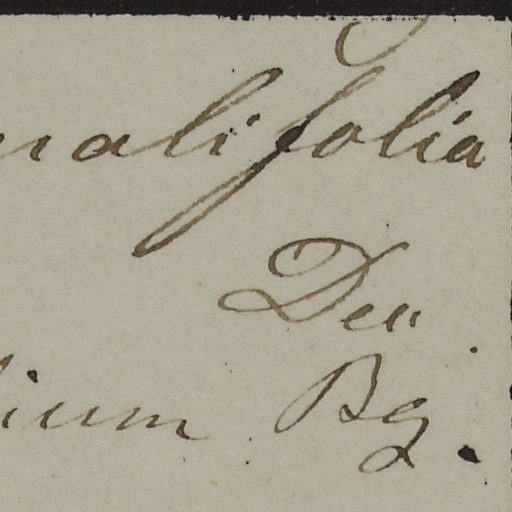 nalifolia
Dec.
ium Bg.